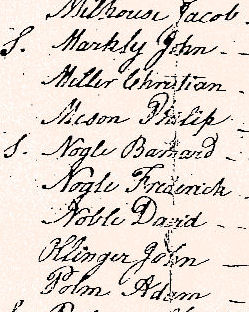 Milhouse Jacob.
S. Markly John –
Miller Christian –
Meson Philip –
S. Nogle Barnard –
Nogle Frederick –
Noble David –
Olinger John –
Polm Adam –